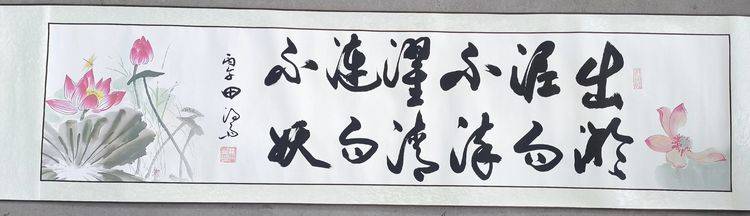 出淤
泥而
不染
濯清
涟而
不妖
丙午田